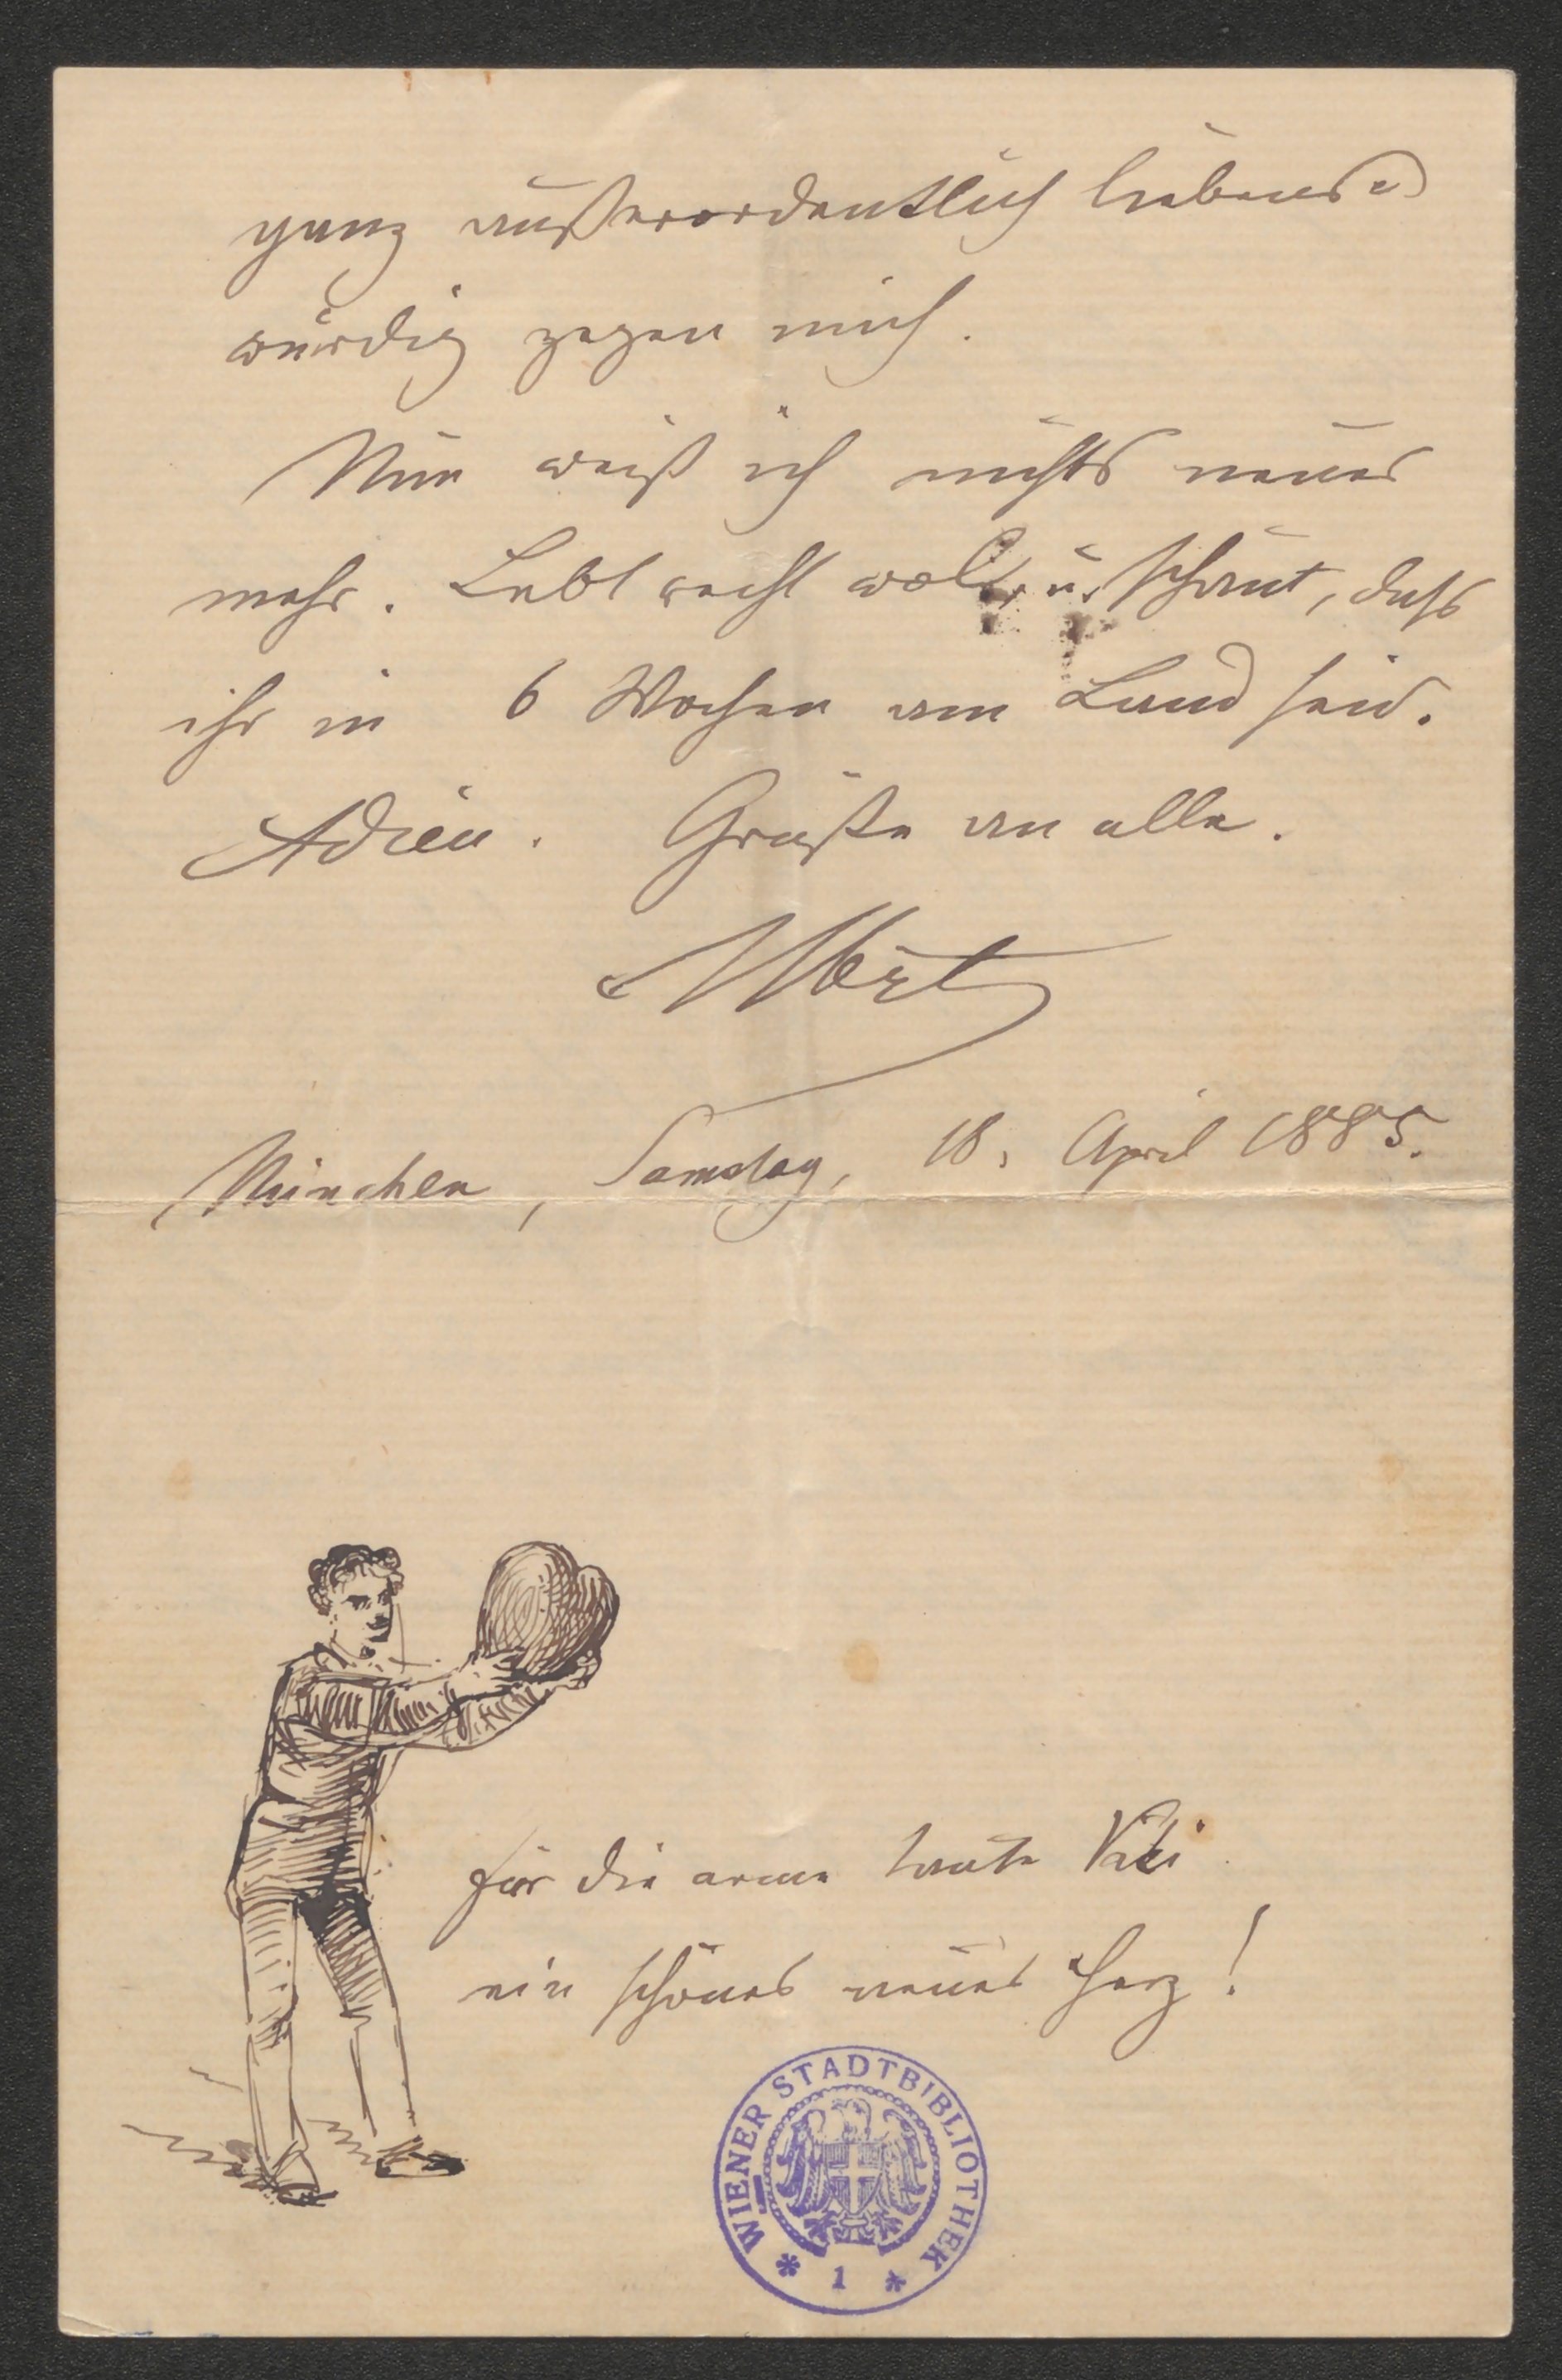 ganz außerordentlich liebens=
würdig gegen mich.
Nun weiß ich nichts neues
mehr. Lebt recht wol u. schaut, dass
ihr in 6 Wochen am Land seid.
Adieu. Grüße an alle.
München, Samstag, 18. April 1885.
für die arme Tante
ein schönes neues Herz!
WIENER STADTBIBLIOTHEK
* 1 *